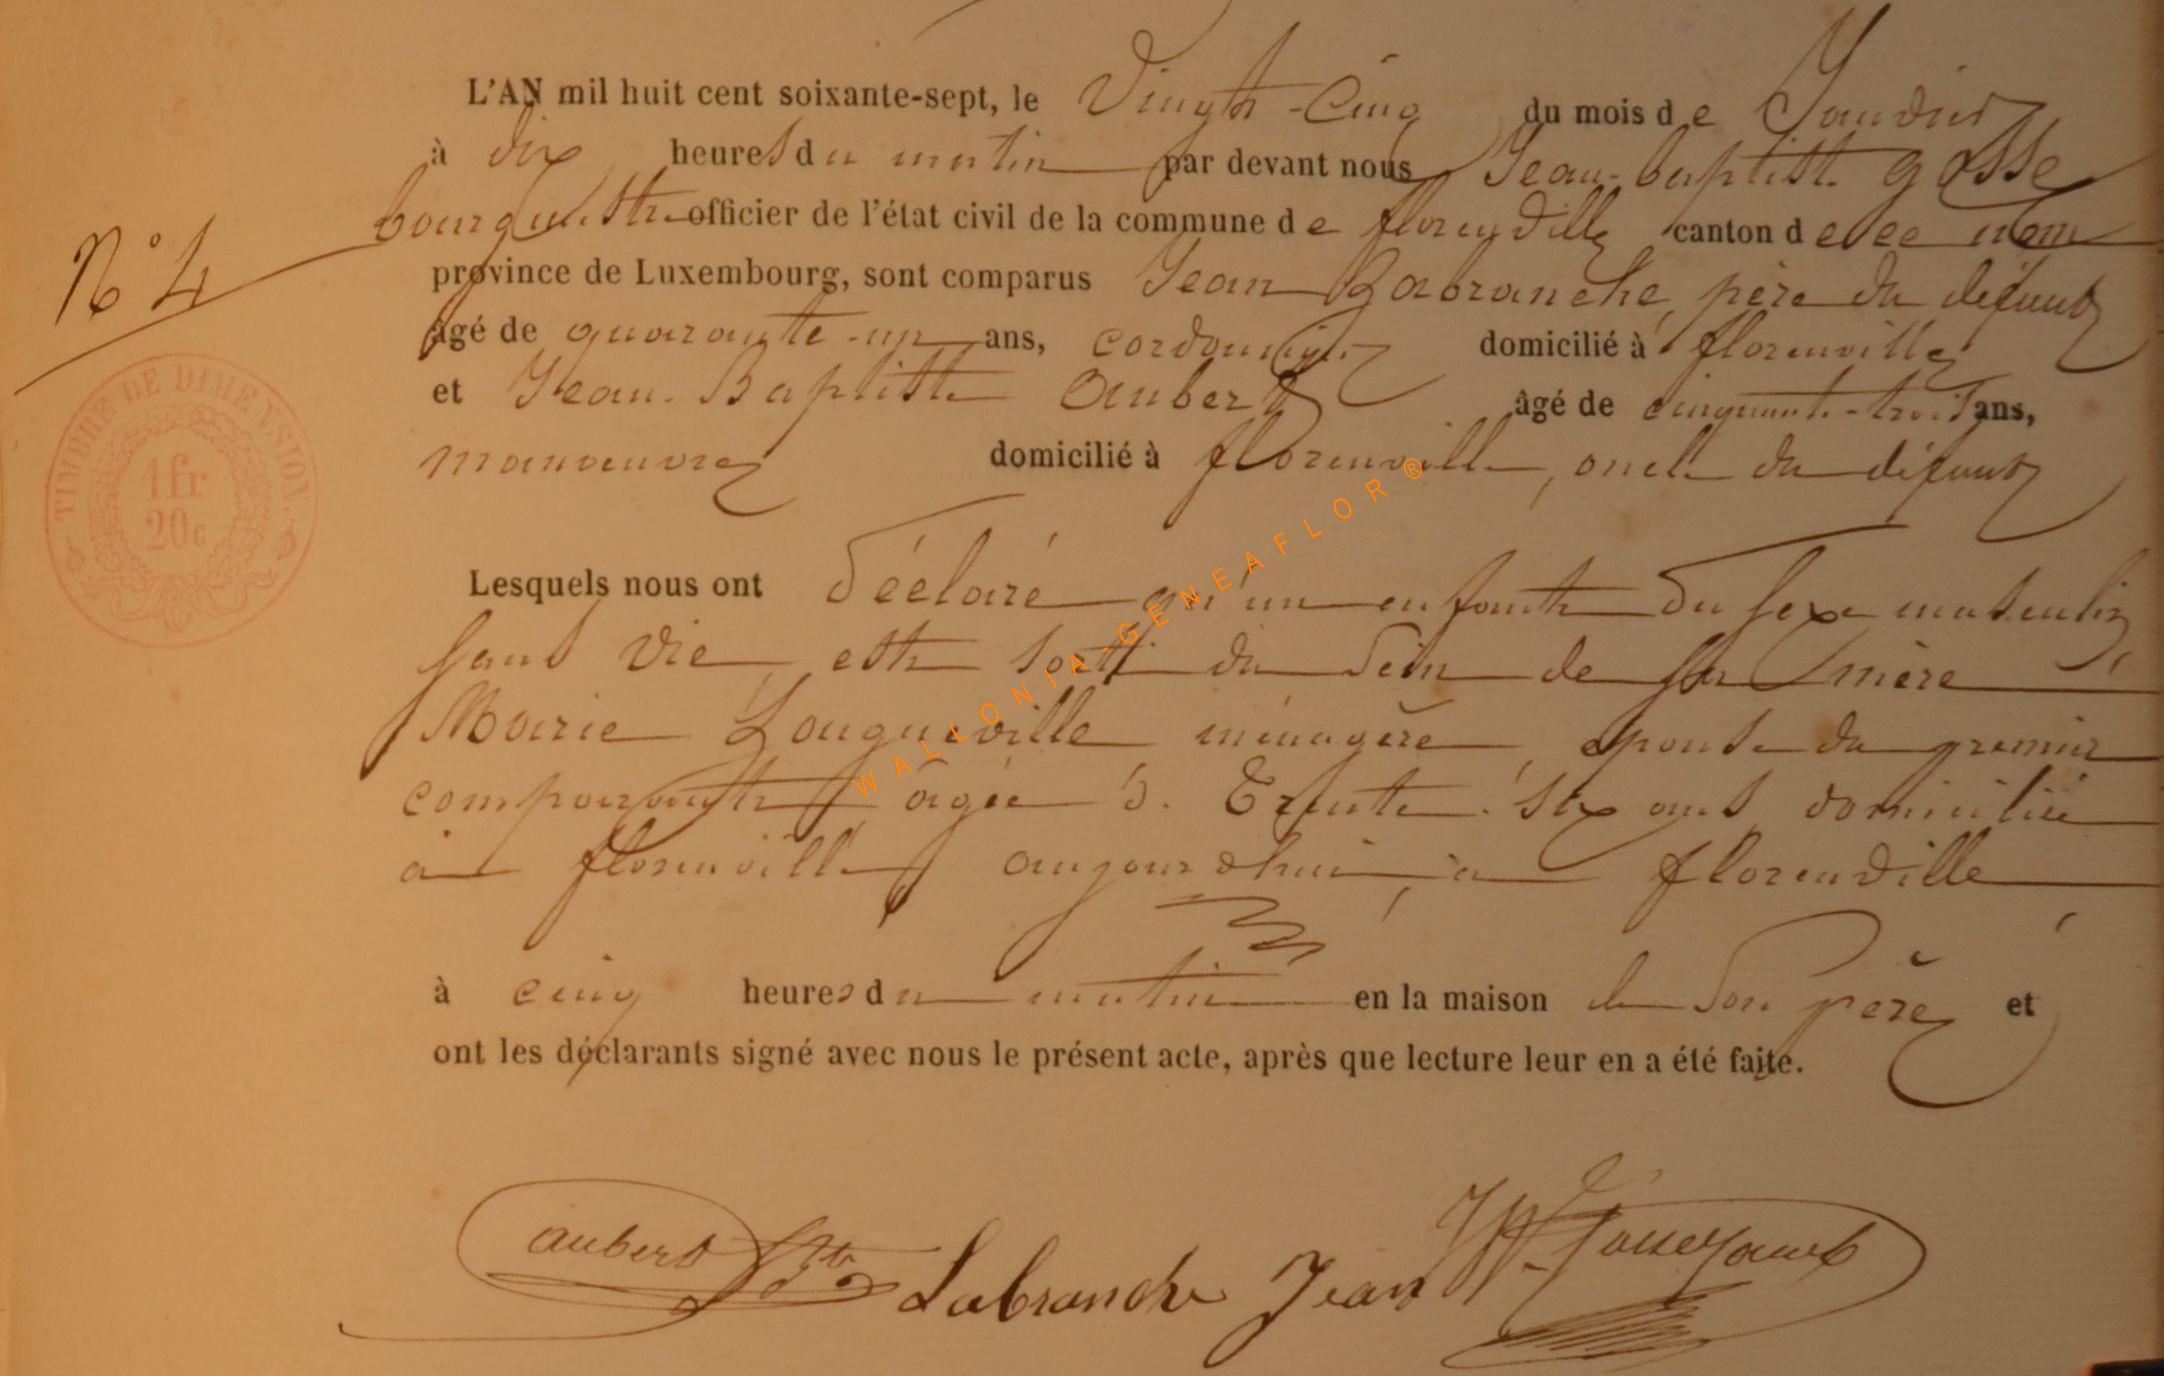 L'AN mil huit cent soixante-sept, le Vingt-Cinq du mois de Janvier
à dix heures du matin par devant nous Jean-baptiste gosse
bourgmestre officier de l'état civil de la commune de florenville canton de ce nom
N° 4
province de Luxembourg, sont comparus Jean Labranche, père du défunt
âgé de quarante-un ans, cordonnier domicilié à florenville
et Jean-Baptiste Aubert âgé de cinquante-trois ans,
manoeuvre domicilié à florenville, oncle du défunt
TIMBRE DE DIMENSION.
1fr
20c
Lesquels nous ont déclaré qu'un enfant du sexe masculin,
sans vie, est sorti du sein de sa mère
Marie Longueville ménagère, épouse du premier
comparant, âgée de Trente-six ans, domiciliée
à florenville, aujourd'hui, à florenville
à cinq heures du matin en la maison de son père et
ont les déclarants signé avec nous le présent acte, après que lecture leur en a été faite.
aubert Bte Labranche Jean
WALLONIA-GENEAFLOR®